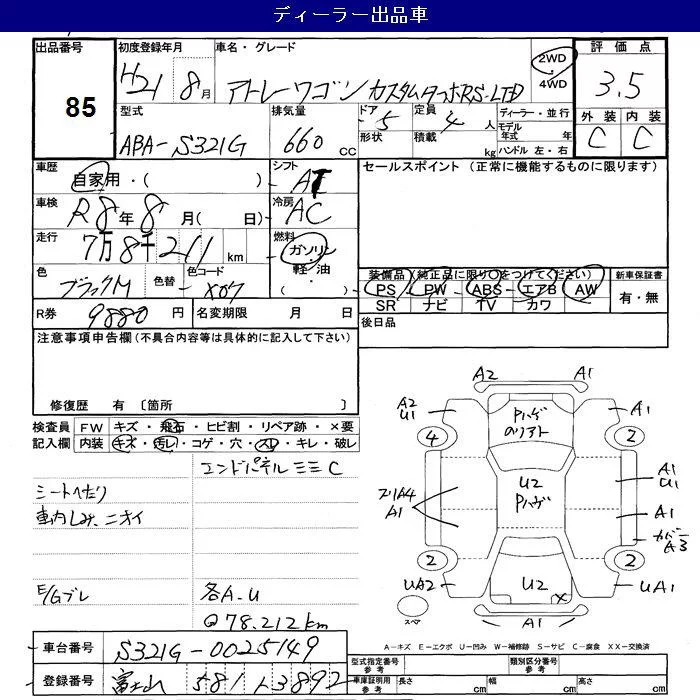 ディーラー出品車
出品番号 初度登録年月 車名・グレード 2WD 評価点
85 H21年 8月 アトレーワゴン カスタムターボRS-LTD 4WD 3.5
型式 排気量 ドア 定員 ディーラー・並行 外装 内装
ABA-S321G 660cc 5 4人 モデル年式 年 C C
形状 積載 kg ハンドル 左・右
車歴 シフト セールスポイント (正常に機能するものに限ります)
自家用・( ) AT
車検 冷房
R8年8月( 日) AC
走行 燃料
7万8千211km ガソリン
軽油
( )
色 色替 色コード 装備品(純正品に限り○をつけてください) 新車保証書
ブラックM X07 PS PW ABS エアB AW 有・無
SR ナビ TV カワ
R券 9880円 名変期限 月 日 後日品
注意事項申告欄(不具合内容等は具体的に記入して下さい)
修復歴 有 〔箇所 〕
検査員 FW キズ・飛石・ヒビ割・リペア跡・×要
記入欄 内装 キズ・汚レ・コゲ・穴・スレ・キレ・破レ
エンドパネルミミC
シートヘたり
車内しみ、ニオイ
E/Gブレ 各A.U
@78.212km
A2 A1
A2 U1 Pハゲ A1
4 2
A1 U1
U2 Pハゲ
A1 A1
カバー A3
2 2
UA2 U2 UA1
スペア A1
A-キズ E-エクボ U-凹み W-補修跡 S-サビ C-腐食 XX-交換済
車台番号 S321G-0025149 型式指定番号 参考 類別区分番号 参考
登録番号 富士山 581 と3892 車庫証明用 参考 長さ cm 幅 cm 高さ cm